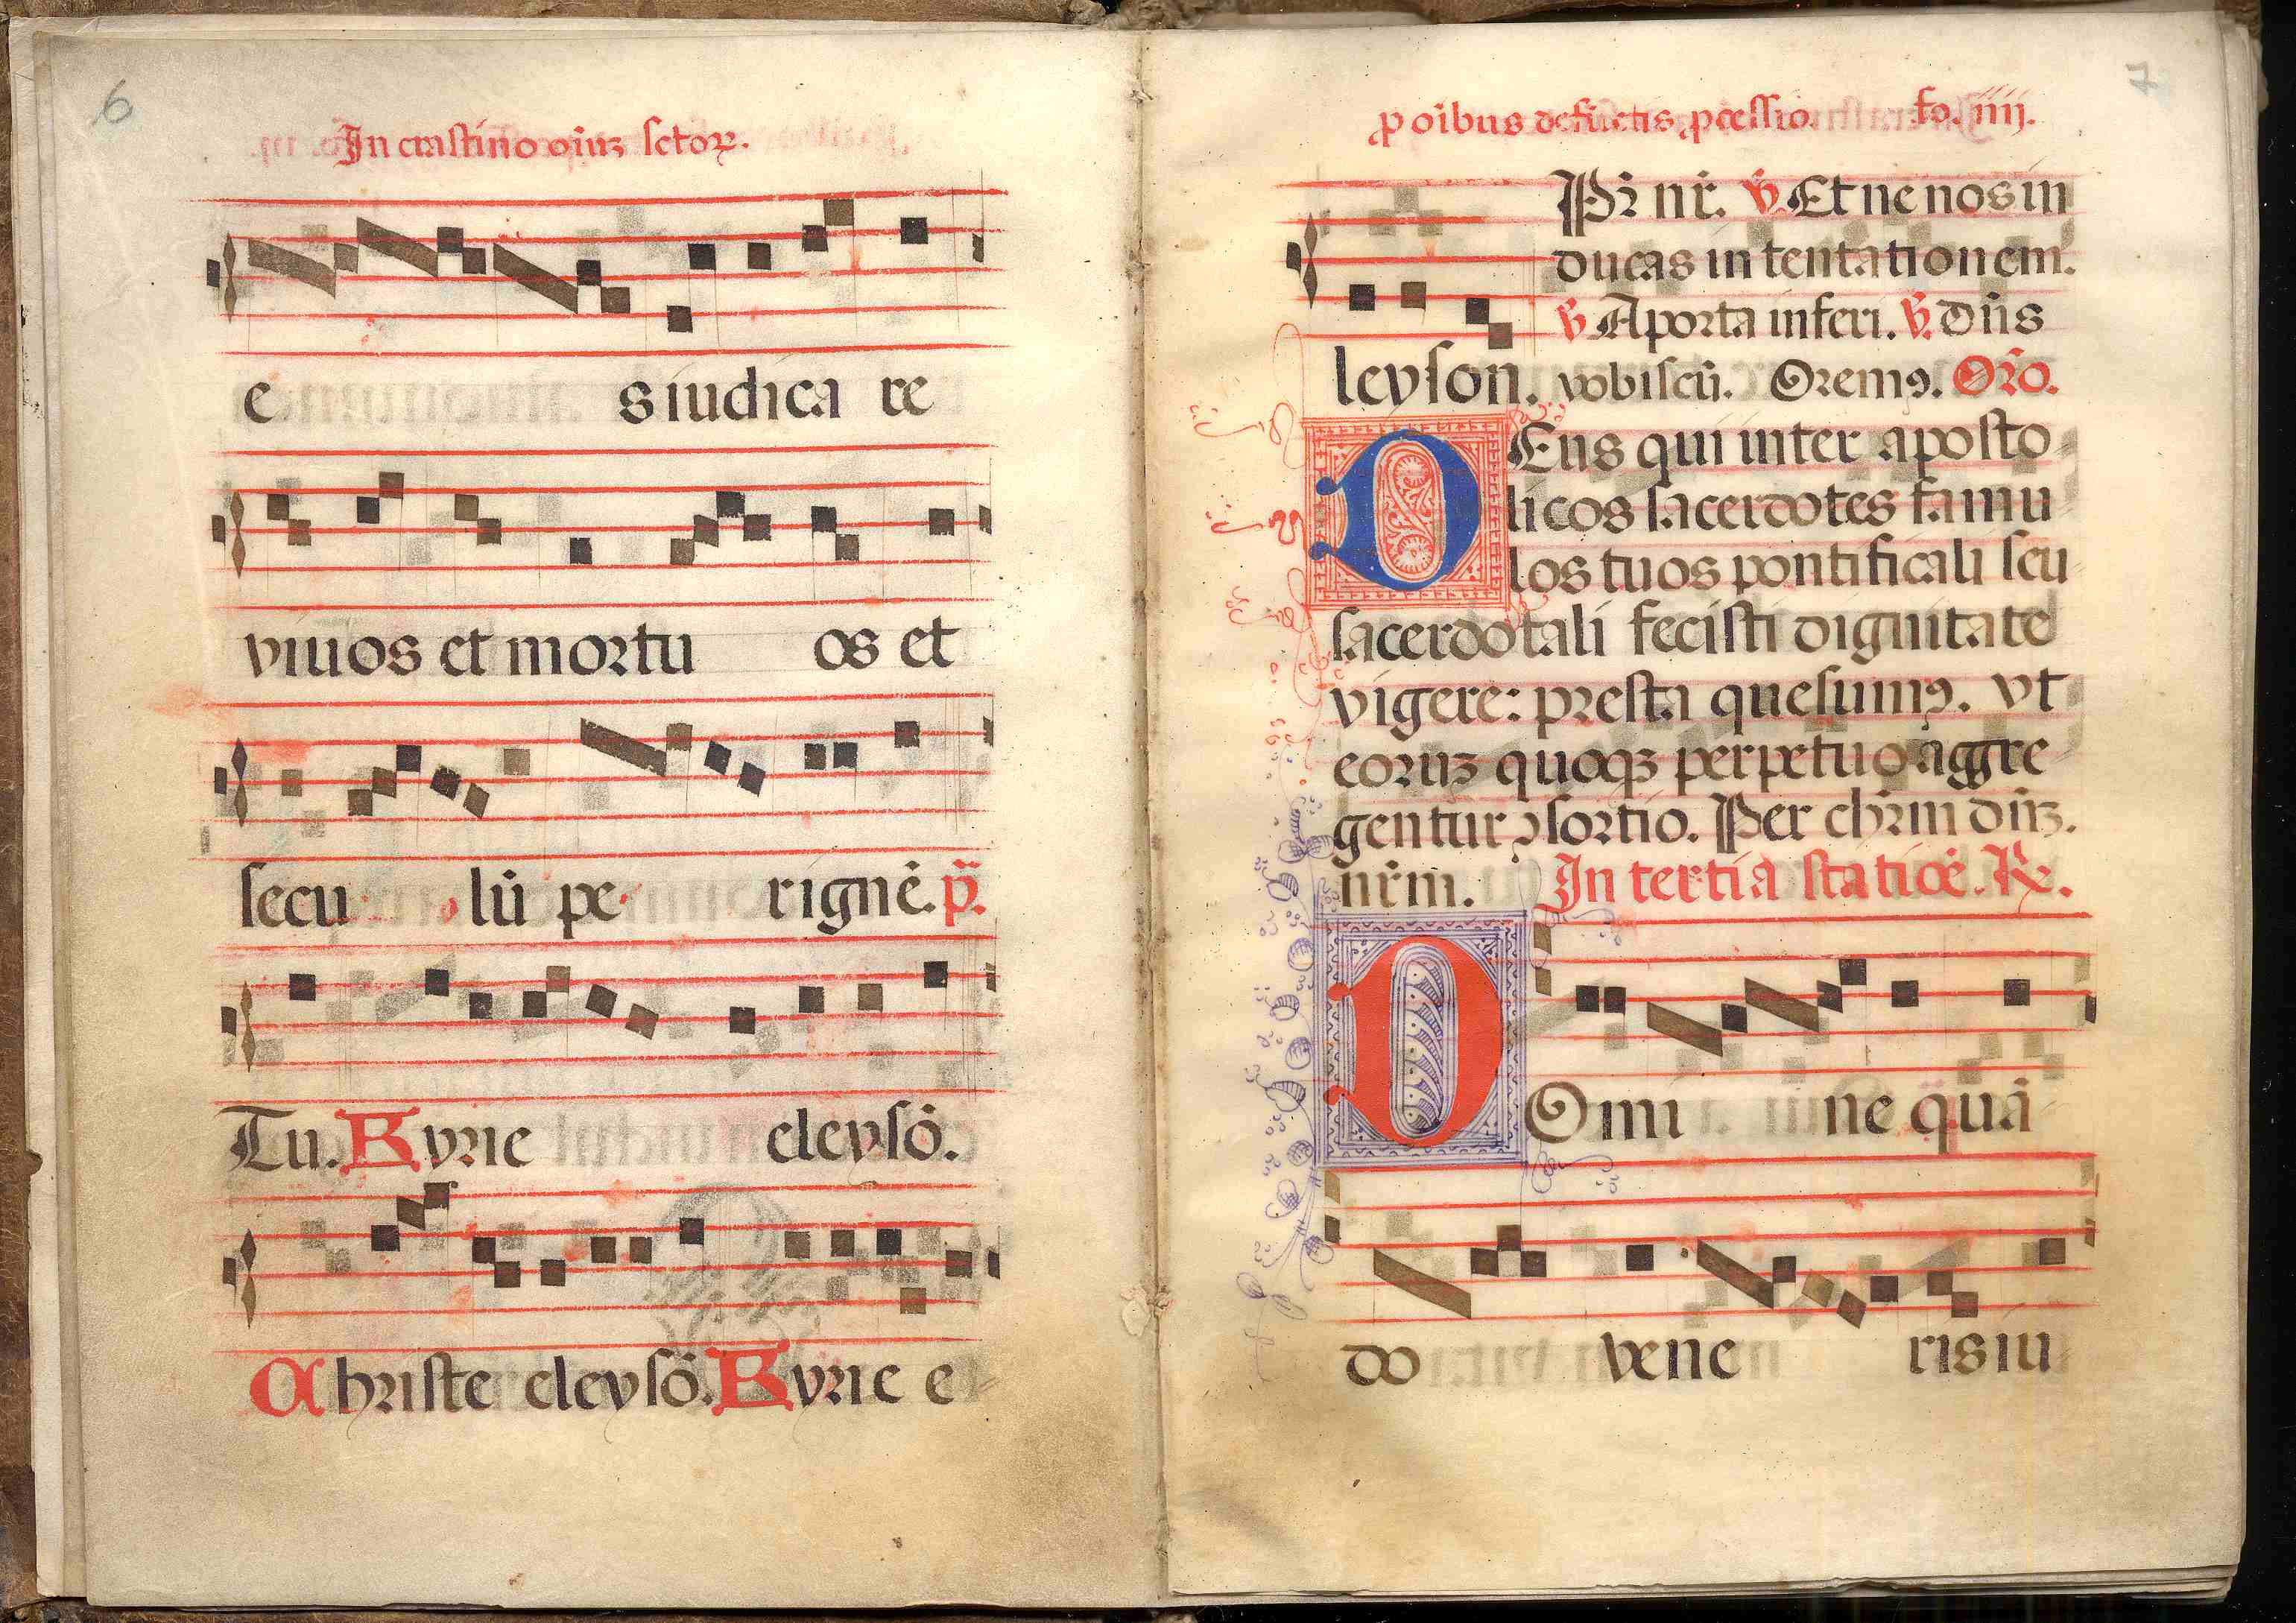 6
In crastino oĩuʒ sctoꝝ.
e s iudica re
viuos et mortu os et
secu lũ pe rignẽ. p̃.
Tu. Kyrie eleysõ.
Christe eleysõ. Kyrie e
7
ꝓ oĩbus defũctis ꝓcessio. fo. iiij.
Pr̃ nr̃. ℣. Et ne nos in
ducas in tentationem.
℣ A porta inferi. ℣. dñs
leyson. vobiscũ. Oremꝯ. Or̃o.
DEus qui inter aposto
licos sacerdotes famu
los tuos pontificali seu
sacerdotali fecisti dignitate
vigere: presta quesumꝯ. vt
eoruʒ quoqʒ perpetuo aggre
gentur ꝯsortio. Per chr̃m dñʒ.
nr̃m. In tertia statiõe. ℟.
DOmi ne quã
do vene ris iu